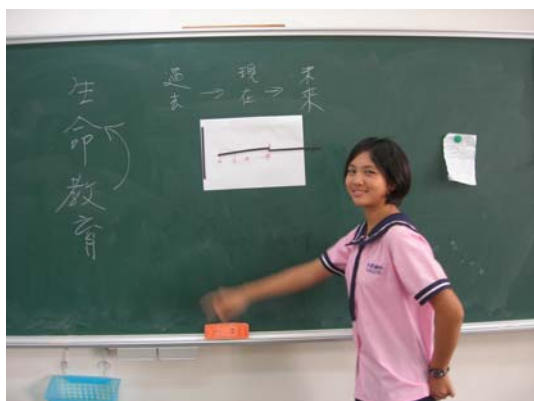 生命教育
過去→現在→未來